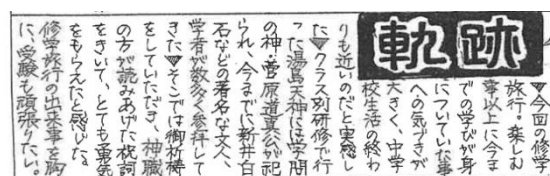 軌跡
▽今回の修学
旅行。楽しむ
事以上に今ま
での学びが身
についていた事
への気づきが
大きく、中学
校生活の終わ
りも近いのだと実感し
た▽クラス別研修で行
った湯島天神には学問
の神・菅原道真公が祀
られ、今までに新井白
石などの著名な文人、
学者が数多く参拝して
きた▽そこでは御祈祷
をしていただき、神職
の方が読みあげた祝詞
をきいて、とても勇気
をもらえたと感じた。
修学旅行の出来事を胸
に、受験も頑張りたい。